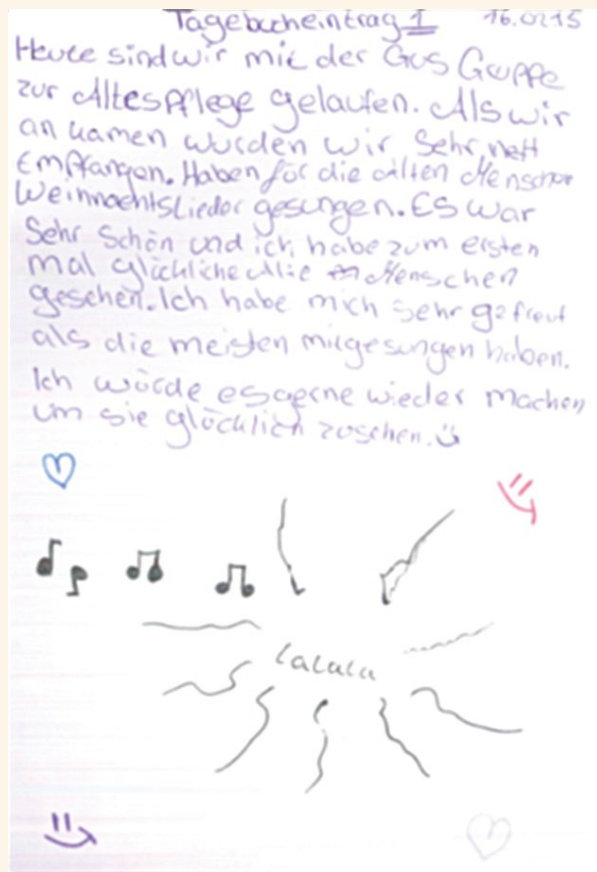 Tagebucheintrag 1 16.0215
Heute sind wir mit der GGS Gruppe
zur Altespflege gelaufen. Als wir
an kamen wurden wir Sehr nett
Empfangen. Haben für die Alten Menschen
Weinnachtslieder gesungen. Es war
Sehr Schön und ich habe zum ersten
mal glückliche Alte Menschen
gesehen. Ich habe mich sehr gefreut
als die meisten mitgesungen haben.
Ich würde es gerne wieder machen
um sie glücklich zusehen.
Lalala